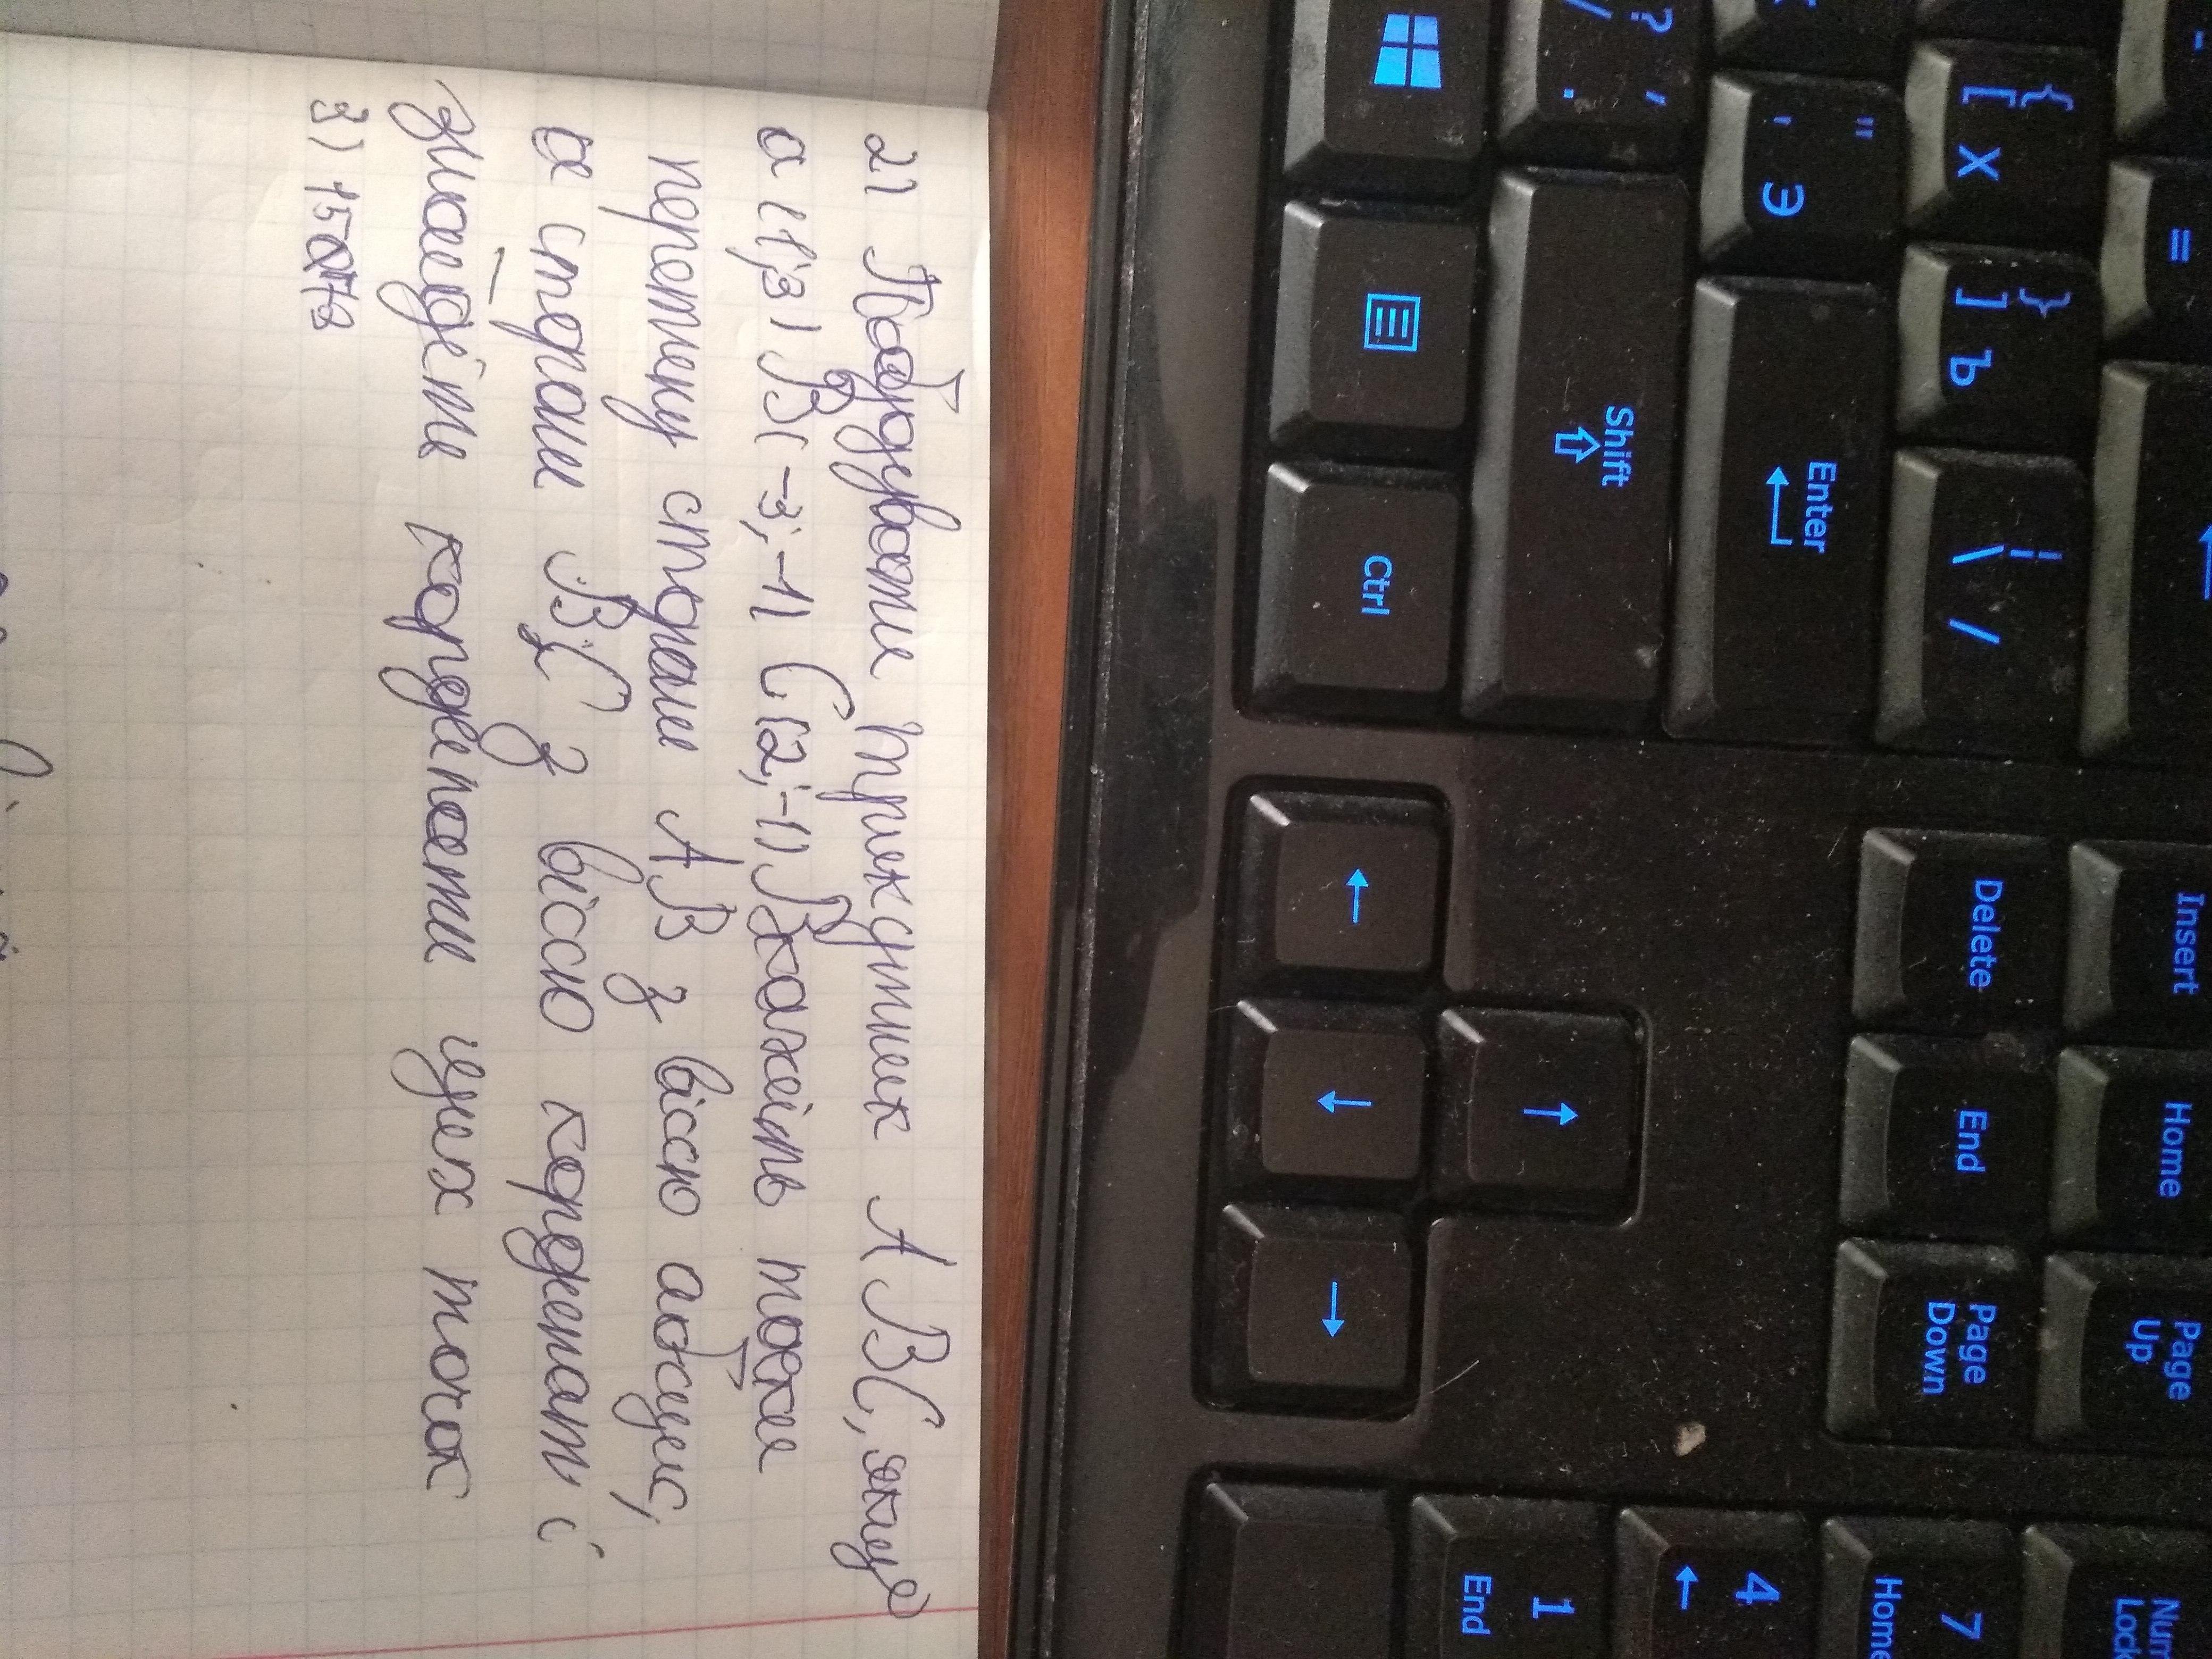 2) Побудувати трикутник АВС, якщо
а (1;3) В(-3;-1) С(2;-1) Вкажіть точки
перетину сторони АВ з віссю абсцис,
а сторони ВС з віссю кординат і
знайдіть кординати цих точок
3)
?
/
,
.
"
'
Э
{
[
Х
}
]
Ъ
-
=
Shift
Enter
Ctrl
|
\
/
Insert
Delete
Home
End
Page
Up
Page
Down
Num
Lock
7
Home
4
1
End